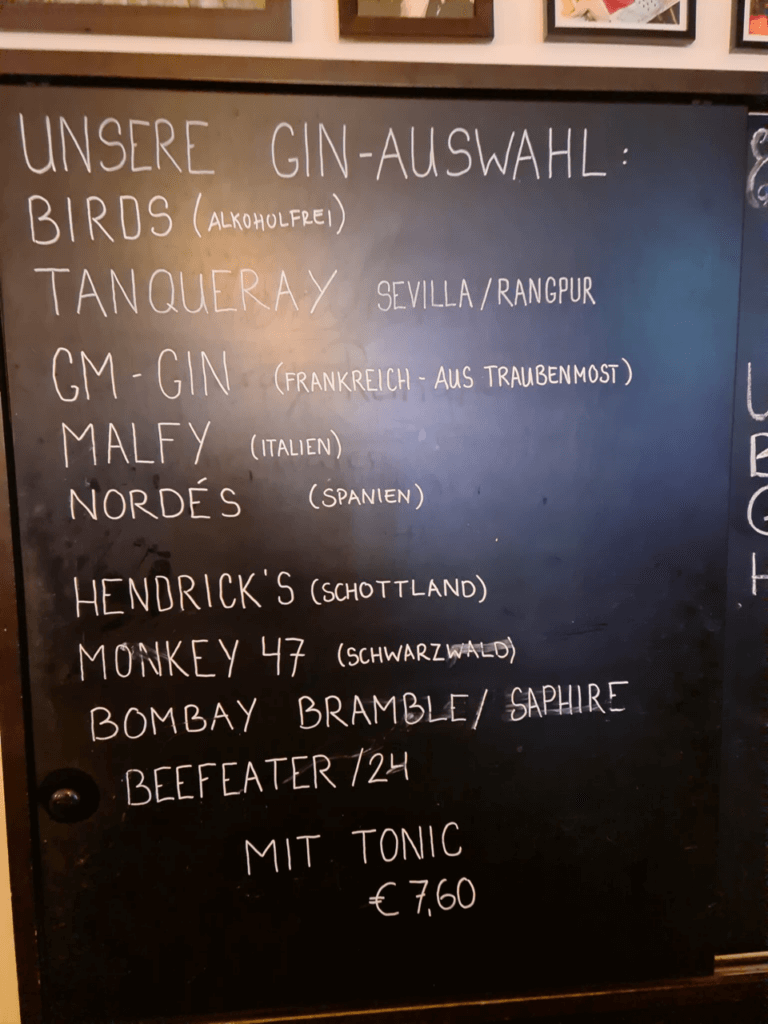 UNSERE GIN-AUSWAHL:
BIRDS (ALKOHOLFREI)
TANQUERAY SEVILLA/RANGPUR
GM-GIN (FRANKREICH - AUS TRAUBENMOST)
MALFY (ITALIEN)
NORDÉS (SPANIEN)
HENDRICK'S (SCHOTTLAND)
MONKEY 47 (SCHWARZWALD)
BOMBAY BRAMBLE/ SAPHIRE
BEEFEATER /24
MIT TONIC
€ 7,60